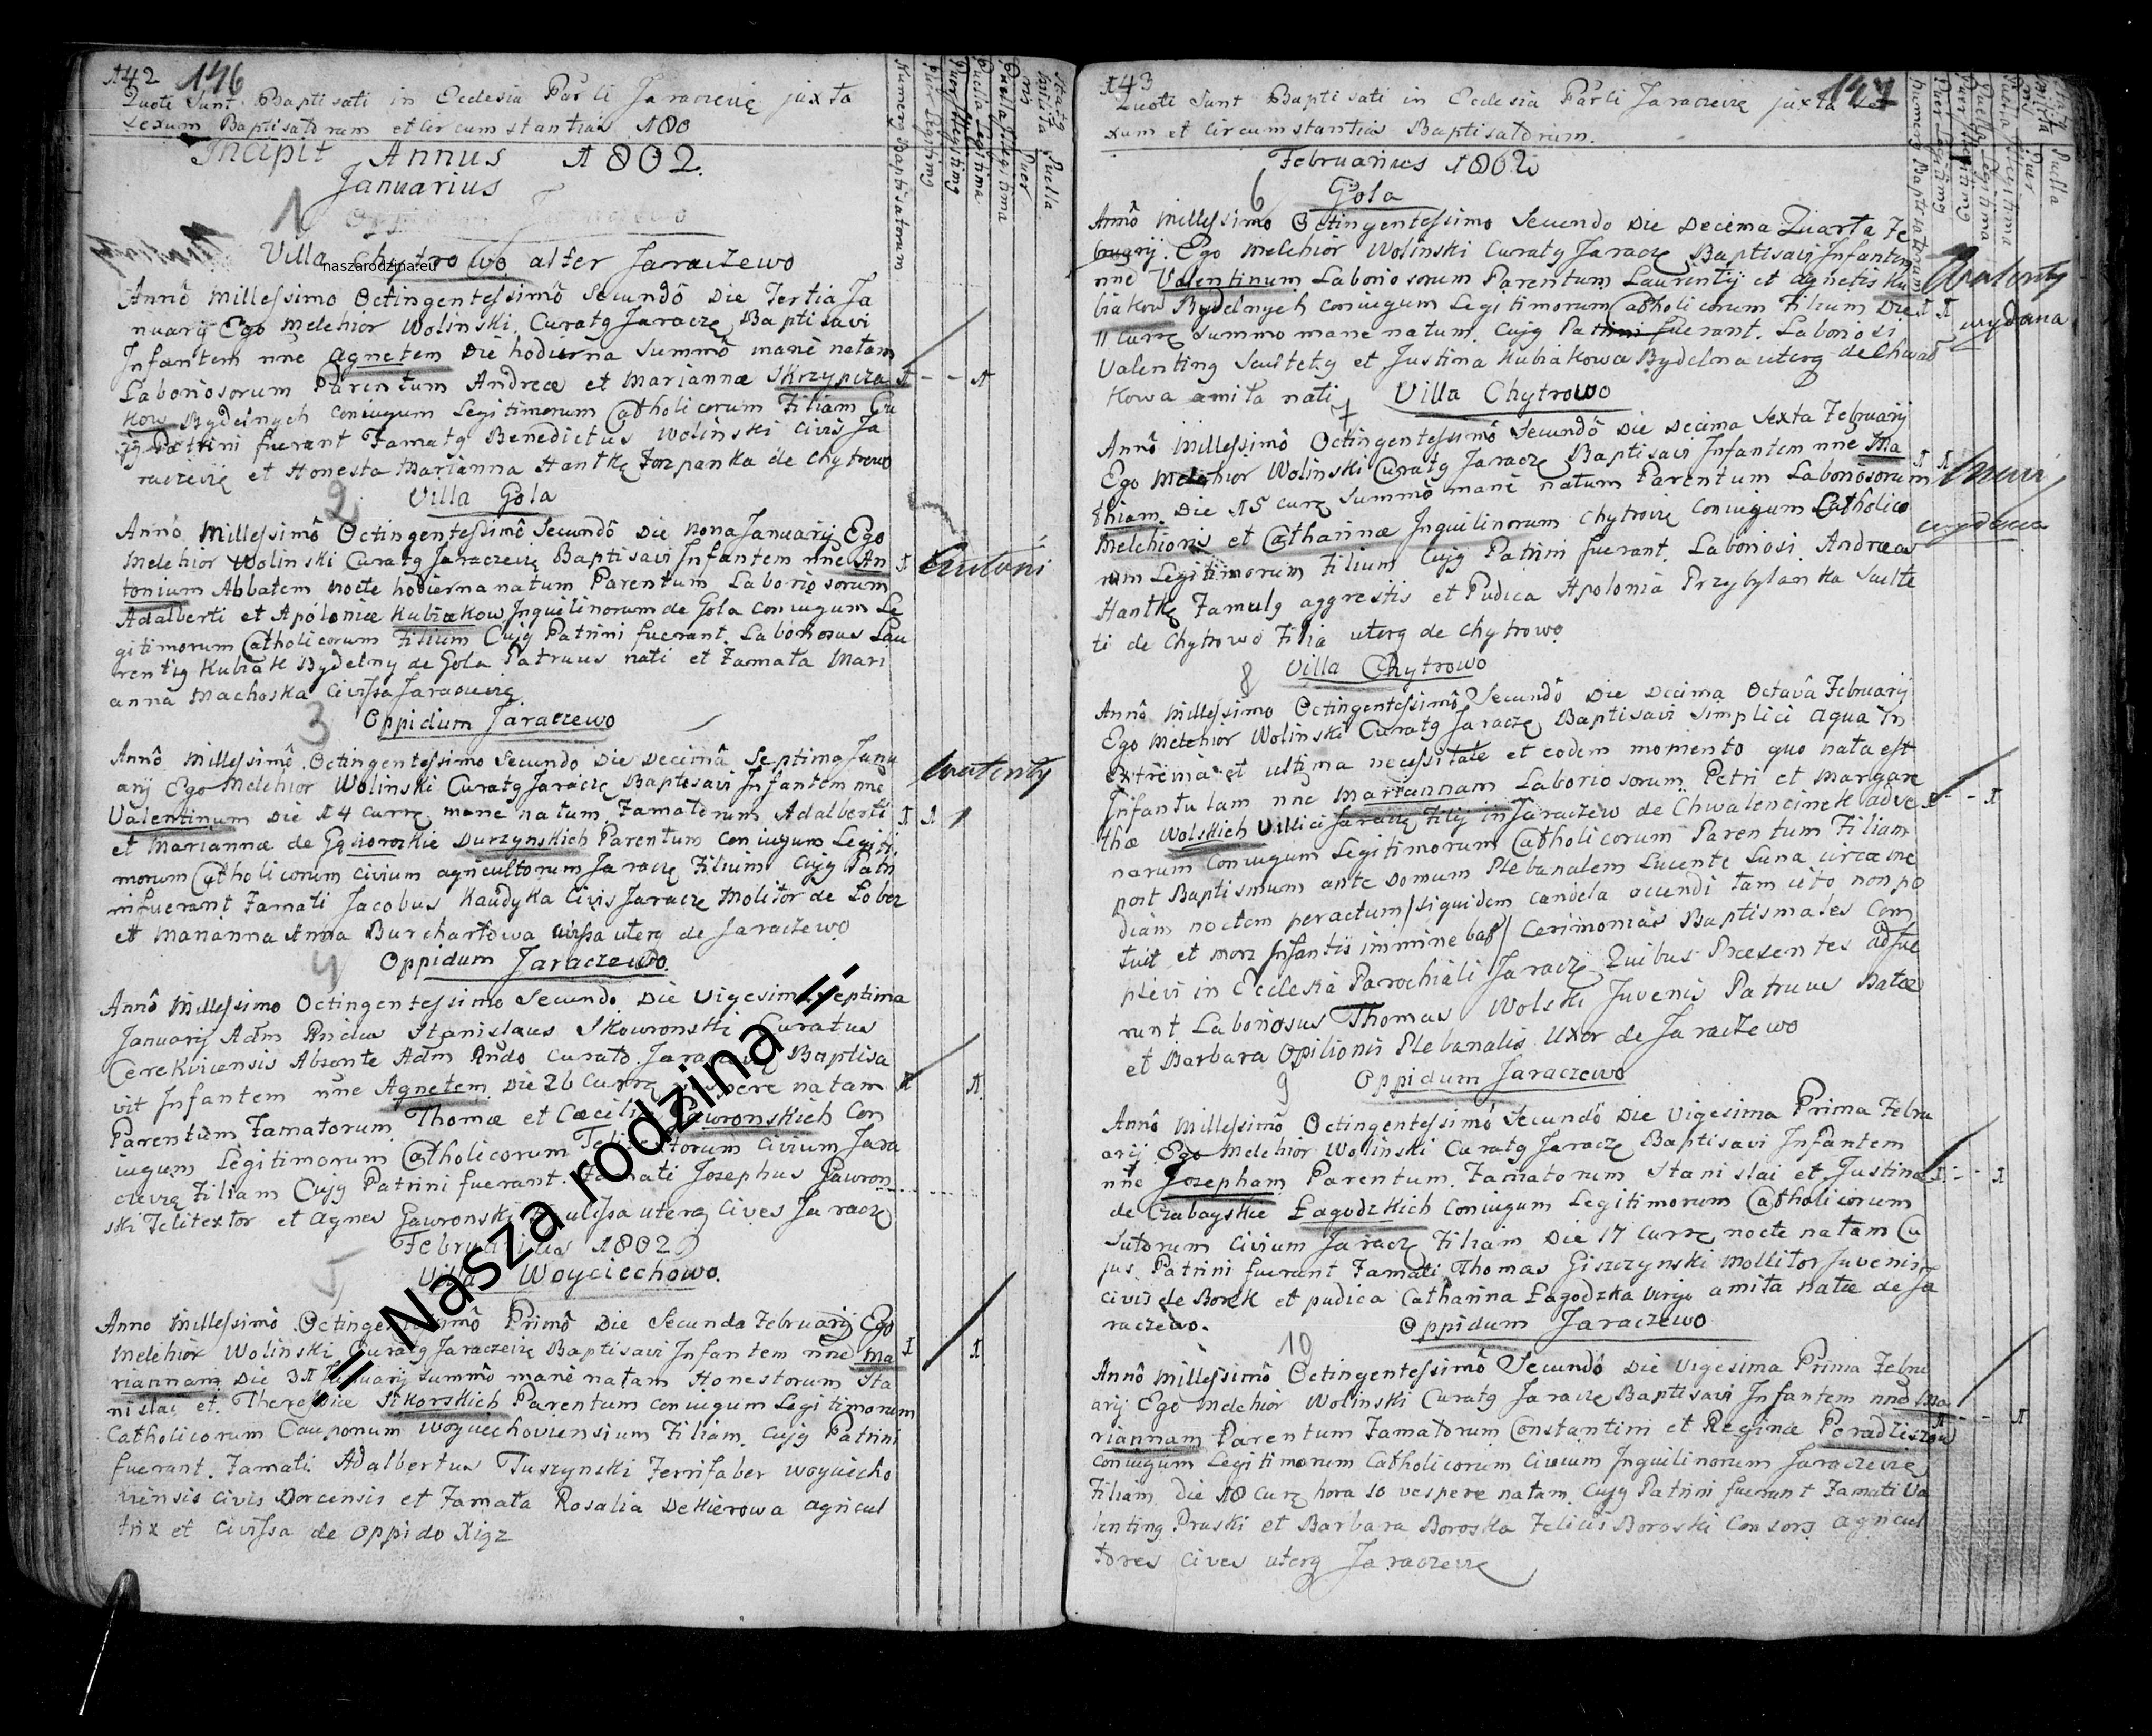 142 146
Quoti Sunt Baptisati in Ecclesia Par'li Jaraczeviẽ juxta
Sexum Baptisatorum et Circumstantias 180
Incipit Annus 1802.
Januarius
1
Villa Chytrowo alter Jaraczewo
naszarodzina.eu
Annô Millessimo Octingentessimô Secundô Die Tertia Ja
nuarij Ego Melchior Wolinski Curatg Jaracze Baptisavi
Infantem nñe Agnetem Die hodierna Summô mane natam
Laboriosorum Parentum Andreæ et Mariannæ Skrzypcza
kow Bydelnych Coniugum Legitimorum Catholicorum Filiam Cu
jg Patrini fuerant Famatg Benedictus Wolinski Civis Ja
racteviẽ et Honesta Marianna Hantkę Forpanka de Chytrowo
2 Villa Gola
Annô Millessimô Octingentessimô Secundô Die Nona Januarij Ego
Melchior Wolinski Curatg Jaraczeviẽ Baptisavi Infantem nñe An
tonium Abbatem nocte hodierna natum Parentum Laboriosorum
Adalberti et Apoloniæ Kubiakow Inquilinorum de Gola Coniugum Le
gitimorum Catholicorum Filium Cujg Patrini fuerant Laboriosus Lau
rentig Kubiak Bydelny de Gola Patruus nati et Famata Mari
anna Machoska Civissa Jaraczeviẽ
Antoni
3 Oppidum Jaraczewo
Annô Millessimô Octingentessimo Secundo Die Decimâ Septima Janu
arij Ego Melchior Wolinski Curatg Jaracze Baptisavi Infantem nñe
Valentinum Die 14 Curre mane natum Famatorum Adalberti
et Mariannæ de Gąsiorozkie Durzynskich Parentum Coniugum Legiti
morum Catholicorum Civium agricultorum Jaracze Filium Cujg Patri
ni fuerant Famati Jacobus Kaudyka Civis Jaracze Molitor de Lobez
et Marianna Anna Burchartowa Civissa uterg de Jaraczewo
Walenty
4 Oppidum Jaraczewo
Annô Millessimo Octingentessimo Secundo Die Vigesima Septima
Januarij Adm Rndus Stanislaus Skowronski Curatus
Cerekvicensis Absente Adm Rndo Curato Jaraczeviẽ Baptisa
vit Infantem nñe Agnetem Die 26 Curre vespere natam
Parentum Famatorum Thomæ et Cæciliæ Gawronskich Con
iugum Legitimorum Catholicorum Civium Jara
cieviẽ Filiam Cujg Patrini fuerant Famati Josephus Gawron
ski Telitextor et Agnes Gawronski uterg Cives Jaracze
Februarius 1802
5 Villa Woyciechowo.
Anno Millessimô Octingentessimô Primô Die Secunda Februarij Ego
Melchior Wolinski Curatg Jaraczeviẽ Baptisavi Infantem nñe Ma
riannam Die 31 Januarij Summô mane natam Honestorum Sta
nislai et Theressiæ Sikorskich Parentum Coniugum Legitimorum
Catholicorum Cauponum Woyciechoviensium Filiam Cujg Patrini
fuerant Famati Adalbertus Tuszynski Ferrifaber Woyciecho
viensis Civis Dorcensis et Famata Rosalia Dekierowa agricul
trix et Civissa de Oppido Xigz
.:= Nasza rodzina =:.
143 147
Quoti Sunt Baptisati in Ecclesia Par'li Jaraczeviẽ juxta Se
xum et Circumstantias Baptisatorum.
Februarius 1802
6 Gola
Annô Millessimo Octingentessimo Secundo Die Decima Quarta Fe
bruarij Ego Melchior Wolinski Curatg Jaracze Baptisavi Infantem
nñe Valentinum Laboriosorum Parentum Laurentij et Agnetis Ku
biakow Bydelnych Coniugum Legitimorum Catholicorum Filium Die
11 Curre Summo mane natum Cujg Patrini fuerant Laboriosi
Valenting Scultetg et Justina Kubiakowa Bydelna uterg de Chwał
kowa amita nati
Walenty
wydana
7 Villa Chytrowo
Annô Millessimô Octingentessimô Secundô Die Decima Sexta Februarij
Ego Melchior Wolinski Curatg Jaracze Baptisavi Infantem nñe Ma
thiam Die 15 Curre Summô manè natum Parentum Laboriosorum
Melchioris et Catharinæ Inquilinorum Chytroviẽ Coniugum Catholico
rum Legitimorum Filium Cujg Patrini fuerant Laboriosi Andreas
Hantkę Famulg aggrestis et Pudica Apolonia Przybylanka Sculte
ti de Chytrowo Filia uterg de Chytrowo
wydana
8 Villa Chytrowo
Annô Millessimo Octingentessimô Secundô Die Decima Octava Februarij
Ego Melchior Wolinski Curatg Jaracze Baptisavi Simplici aqua in
extrema et ultima necessitate et eodem momento quo nata est
Infantulam nñe Mariannam Laboriosorum Petri et Margare
thæ Wolskich Villici Jaracze Filij in Jaraczew de Chwalencinek adve
narum Coniugum Legitimorum Catholicorum Parentum Filiam
post Baptismum ante Domum Plebanalem Lucente Luna circa me
diam noctem peractum /siquidem candela accendi tam cito non po
tuit et mors Infantis imminebat/ Cerimonias Baptismales Com
plevi in Ecclesia Parochiali Jaracze Quibus Præsentes adfue
runt Laboriosus Thomas Wolski Juvenis Patruus Natæ
et Barbara Opilionis Plebanalis Uxor de Jaraczewo
9 Oppidum Jaraczewo
Annô Millessimô Octingentessimô Secundô Die Vigesima Prima Febru
arij Ego Melchior Wolinski Curatg Jaracze Baptisavi Infantem
nñe Josepham Parentum Famatorum Stanislai et Justinæ
de Czabayskie Łagodzkich Coniugum Legitimorum Catholicorum
Sutorum Civium Jaracze Filiam Die 17 Curre nocte natam Cu
jus Patrini fuerant Famati Thomas Giszczynski Mollitor Juvenis
Civis de Borek et pudica Catharina Łagodzka Virgo amita natæ de Ja
raczewo.
10 Oppidum Jaraczewo
Annô Millessimô Octingentessimô Secundô Die Vigesima Prima Febru
arij Ego Melchior Wolinski Curatg Jaracze Baptisavi Infantem nñe Ma
riannam Parentum Famatorum Constantini et Reginæ Peradziszow
Coniugum Legitimorum Catholicorum Civium Inquilinorum Jaraczeviẽ
Filiam Die 18 Curre hora 10 vespere natam Cujg Patrini fuerunt Famati Va
lenting Pruski et Barbara Boroska Felicis Boroski Consors Agricul
tores Cives uterg Jaraczeviẽ